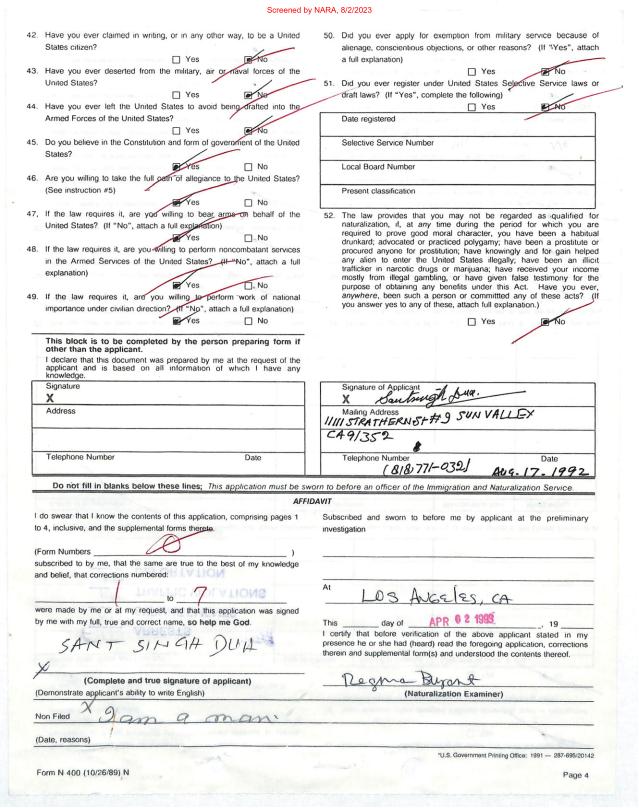 Screened by NARA, 8/2/2023
42. Have you ever claimed in writing, or in any other way, to be a United
States citizen?
Yes No
43. Have you ever deserted from the military, air or naval forces of the
United States?
Yes No
44. Have you ever left the United States to avoid being drafted into the
Armed Forces of the United States?
Yes No
45. Do you believe in the Constitution and form of government of the United
States?
Yes No
46. Are you willing to take the full oath of allegiance to the United States?
(See instruction #5)
Yes No
47, If the law requires it, are you willing to bear arms on behalf of the
United States? (If "No", attach a full explanation)
Yes No
48. If the law requires it, are you willing to perform noncombatant services
in the Armed Services of the United States? (If "No", attach a full
explanation)
Yes No
49. If the law requires it, are you willing to perform work of national
importance under civilian direction? (If "No", attach a full explanation)
Yes No
50. Did you ever apply for exemption from military service because of
alienage, conscientious objections, or other reasons? (If "Yes", attach
a full explanation)
Yes No
51. Did you ever register under United States Selective Service laws or
draft laws? (If "Yes", complete the following)
Yes No
Date registered
Selective Service Number
Local Board Number
Present classification
52. The law provides that you may not be regarded as qualified for
naturalization, if, at any time during the period for which you are
required to prove good moral character, you have been a habitual
drunkard; advocated or practiced polygamy; have been a prostitute or
procured anyone for prostitution; have knowingly and for gain helped
any alien to enter the United States illegally; have been an illicit
trafficker in narcotic drugs or marijuana; have received your income
mostly from illegal gambling, or have given false testimony for the
purpose of obtaining any benefits under this Act. Have you ever,
anywhere, been such a person or committed any of these acts? (If
you answer yes to any of these, attach full explanation.)
Yes No
This block is to be completed by the person preparing form if
other than the applicant.
I declare that this document was prepared by me at the request of the
applicant and is based on all information of which I have any
knowledge.
Signature
X
Address
Telephone Number Date
Signature of Applicant
X
Mailing Address
11111 STRATHERN ST # 9 SUN VALLEY
CA 91352
Telephone Number Date
(818) 771-0321 AUG. 17. 1992
Do not fill in blanks below these lines; This application must be sworn to before an officer of the Immigration and Naturalization Service.
AFFIDAVIT
I do swear that I know the contents of this application, comprising pages 1
to 4, inclusive, and the supplemental forms thereto.
(Form Numbers 0 )
subscribed to by me, that the same are true to the best of my knowledge
and belief, that corrections numbered:
1 to 7
were made by me or at my request, and that this application was signed
by me with my full, true and correct name, so help me God.
SANT SINGH DUA
X
(Complete and true signature of applicant)
(Demonstrate applicant's ability to write English)
X I am a man.
Non Filed
(Date, reasons)
Subscribed and sworn to before me by applicant at the preliminary
investigation
At LOS ANGELES, CA
This day of APR 02 1993 , 19
I certify that before verification of the above applicant stated in my
presence he or she had (heard) read the foregoing application, corrections
therein and supplemental form(s) and understood the contents thereof.
Regina Bryant
(Naturalization Examiner)
*U.S. Government Printing Office: 1991 — 287-695/20142
Form N 400 (10/26/89) N
Page 4